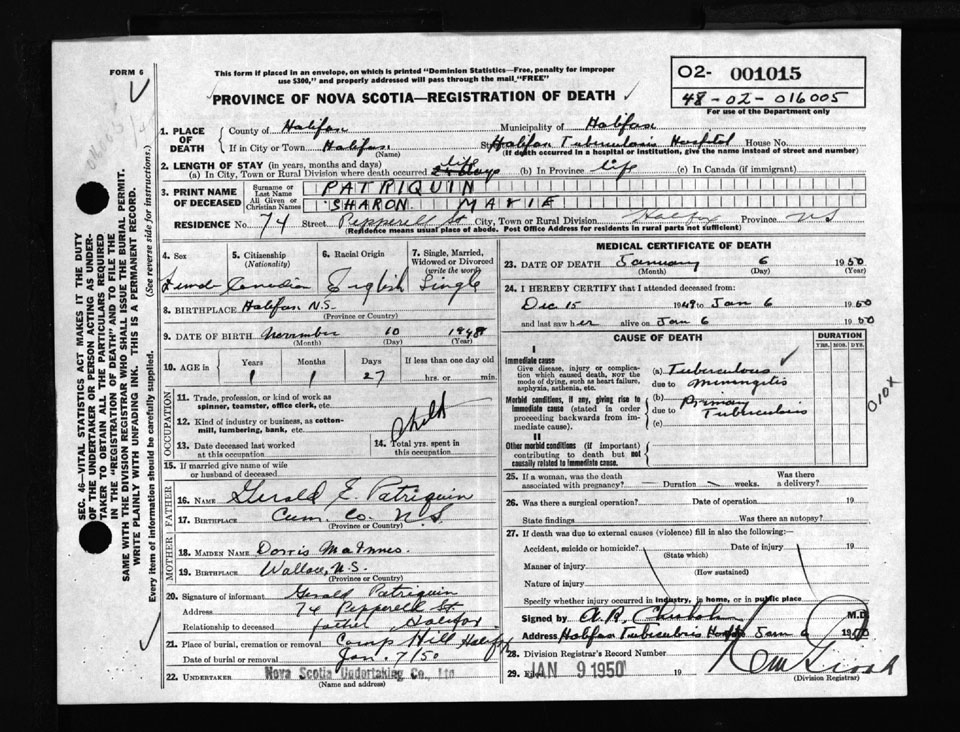 FORM 6
This form if placed in an envelope, on which is printed "Dominion Statistics—Free, penalty for improper
use $300," and properly addressed will pass through the mail "FREE"
PROVINCE OF NOVA SCOTIA—REGISTRATION OF DEATH
02- 001015
48-02-016005
For use of the Department only
1. PLACE OF DEATH
County of Halifax Municipality of Halifax
If in City or Town Halifax (Name) Halifax Tuberculosis Hospital House No.
(If death occurred in a hospital or institution, give the name instead of street and number)
2. LENGTH OF STAY (in years, months and days)
(a) In City, Town or Rural Division where death occurred life (b) In Province life (c) In Canada (if immigrant)
3. PRINT NAME OF DECEASED
Surname or Last Name PATRIQUIN
All Given or Christian Names SHARON MARIE
RESIDENCE No. 74 Street Pepperell St. City, Town or Rural Division Halifax Province NS
(Residence means usual place of abode. Post Office Address for residents in rural parts not sufficient)
4. Sex
5. Citizenship (Nationality) Canadian
6. Racial Origin English
7. Single, Married, Widowed or Divorced (write the word) Single
8. BIRTHPLACE Halifax N.S.
(Province or Country)
9. DATE OF BIRTH November 10 1948
(Month) (Day) (Year)
10. AGE in Years 1 Months 1 Days 27 If less than one day old hrs. or min.
OCCUPATION
11. Trade, profession, or kind of work as spinner, teamster, office clerk, etc.
12. Kind of industry or business, as cotton-mill, lumbering, bank, etc. child
13. Date deceased last worked at this occupation
14. Total yrs. spent in this occupation
15. If married give name of wife or husband of deceased
FATHER
16. NAME Gerald E. Patriquin
17. BIRTHPLACE Cum. Co. N.S.
(Province or Country)
MOTHER
18. MAIDEN NAME Dorris MaInnes
19. BIRTHPLACE Wallace, N.S.
(Province or Country)
20. Signature of informant Gerald Patriquin
Address 74 Pepperell St.
Relationship to deceased father Halifax
21. Place of burial, cremation or removal Camp Hill Halifax
Date of burial or removal Jan. 7/50
22. UNDERTAKER Nova Scotia Undertaking Co., Ltd
(Name and address)
MEDICAL CERTIFICATE OF DEATH
23. DATE OF DEATH January 6 1950
(Month) (Day) (Year)
24. I HEREBY CERTIFY that I attended deceased from:
Dec 15 1949 to Jan 6 1950
and last saw her alive on Jan 6 1950
CAUSE OF DEATH
DURATION
YRS. MOS. DYS.
I
Immediate cause
Give disease, injury or complication which caused death, NOR the mode of dying, such as heart failure, asphyxia, asthenia, etc.
(a) Tuberculous
due to Meningitis
Morbid conditions, if any, giving rise to immediate cause (stated in order proceeding backwards from immediate cause).
(b) Primary
due to Tuberculosis
(c)
II
Other morbid conditions (if important) contributing to death but not causally related to immediate cause.
010x
25. If a woman, was the death associated with pregnancy? Duration weeks. Was there a delivery?
26. Was there a surgical operation? Date of operation 19
State findings Was there an autopsy?
27. If death was due to external causes (violence) fill in also the following:—
Accident, suicide or homicide? Date of injury 19
(State which)
Manner of injury
(How sustained)
Nature of injury
Specify whether injury occurred in industry, in home, or in public place
Signed by A.R. M.D.
Address Halifax Tuberculosis Hospital Jan 6 1950
28. Division Registrar's Record Number
29. Filed JAN 9 1950 19
(Division Registrar)
SEC. 46—VITAL STATISTICS ACT MAKES IT THE DUTY
OF THE UNDERTAKER OR PERSON ACTING AS UNDER-
TAKER TO OBTAIN ALL THE PARTICULARS REQUIRED
IN THE "REGISTRATION OF DEATH" AND TO FILE THE
SAME WITH THE DIVISION REGISTRAR WHO SHALL ISSUE THE BURIAL PERMIT.
WRITE PLAINLY WITH UNFADING INK. THIS IS A PERMANENT RECORD.
Every item of information should be carefully supplied. (See reverse side for instructions.)